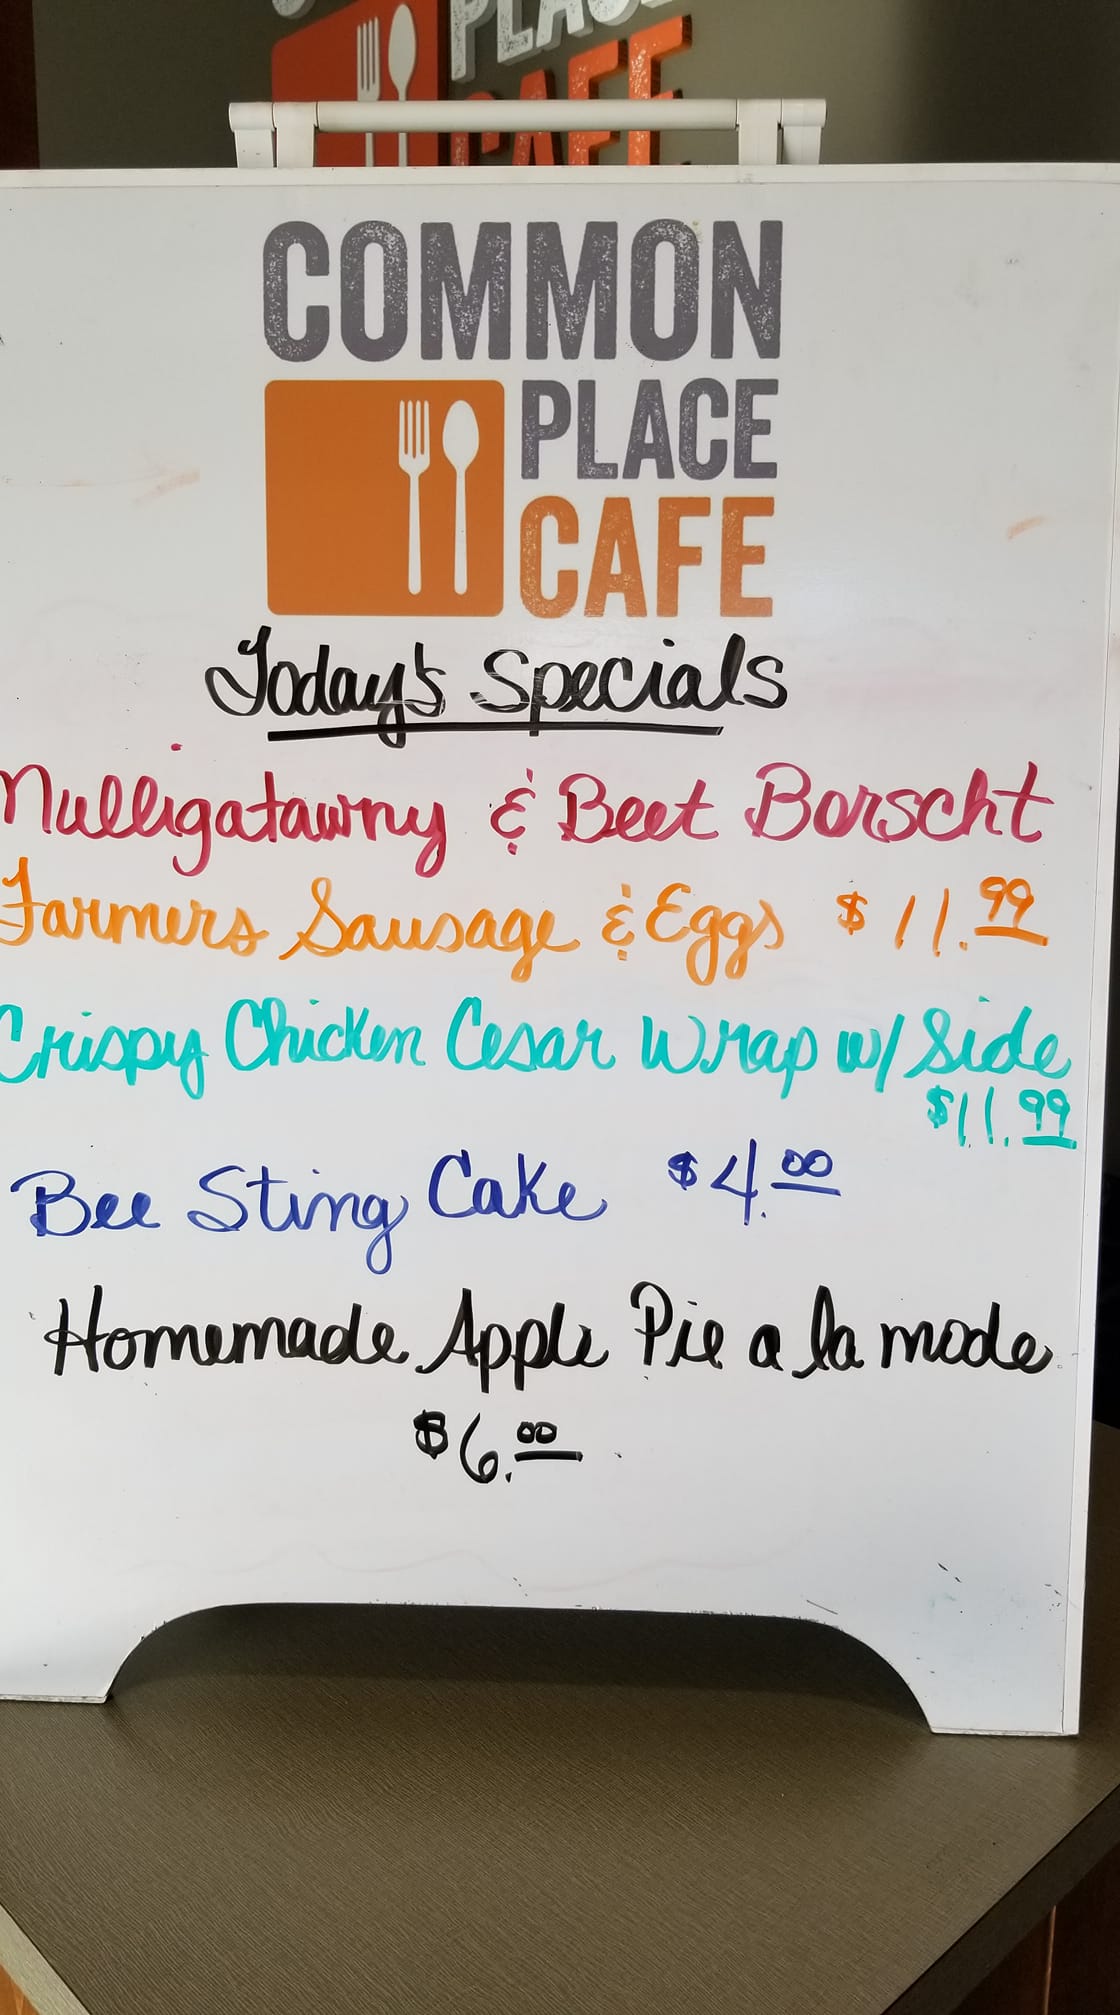 PLACE
CAFE
COMMON
PLACE
CAFE
Today's Specials
Mulligatawny & Beet Borscht
Farmers Sausage & Eggs $11.99
Crispy Chicken Cesar Wrap w/ Side
$11.99
Bee Sting Cake $4.00
Homemade Apple Pie a la mode
$6.00